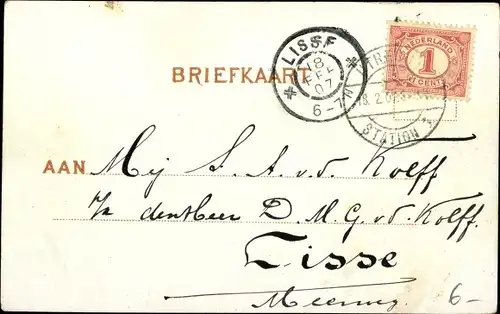 BRIEFKAART
LISSE
18
FEB
07
6-7N
NEDERLAND
1
CENT
18.2.07
STATION
AAN Mej S. A. v.d. Kolff
den Heer D. M. G. v.d. Kolff.
Lisse
6-